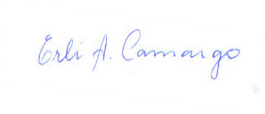 Erli A. Camargo